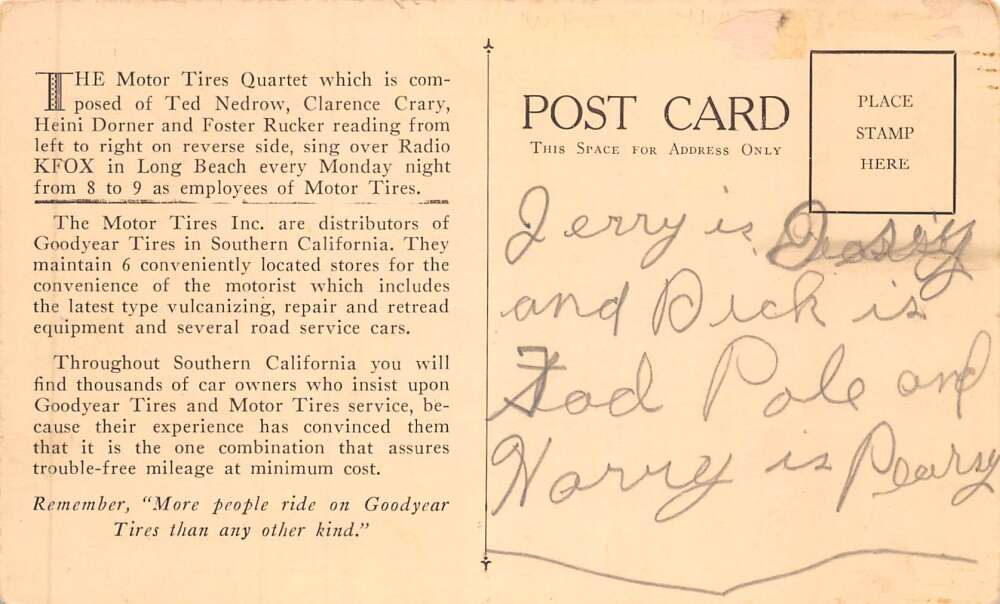 THE Motor Tires Quartet which is com-
posed of Ted Nedrow, Clarence Crary,
Heini Dorner and Foster Rucker reading from
left to right on reverse side, sing over Radio
KFOX in Long Beach every Monday night
from 8 to 9 as employees of Motor Tires.
The Motor Tires Inc. are distributors of
Goodyear Tires in Southern California. They
maintain 6 conveniently located stores for the
convenience of the motorist which includes
the latest type vulcanizing, repair and retread
equipment and several road service cars.
Throughout Southern California you will
find thousands of car owners who insist upon
Goodyear Tires and Motor Tires service, be-
cause their experience has convinced them
that it is the one combination that assures
trouble-free mileage at minimum cost.
Remember, "More people ride on Goodyear
Tires than any other kind."
POST CARD
THIS SPACE FOR ADDRESS ONLY
PLACE
STAMP
HERE
Jerry is
and Dick is
Tad Pole and
Harry is